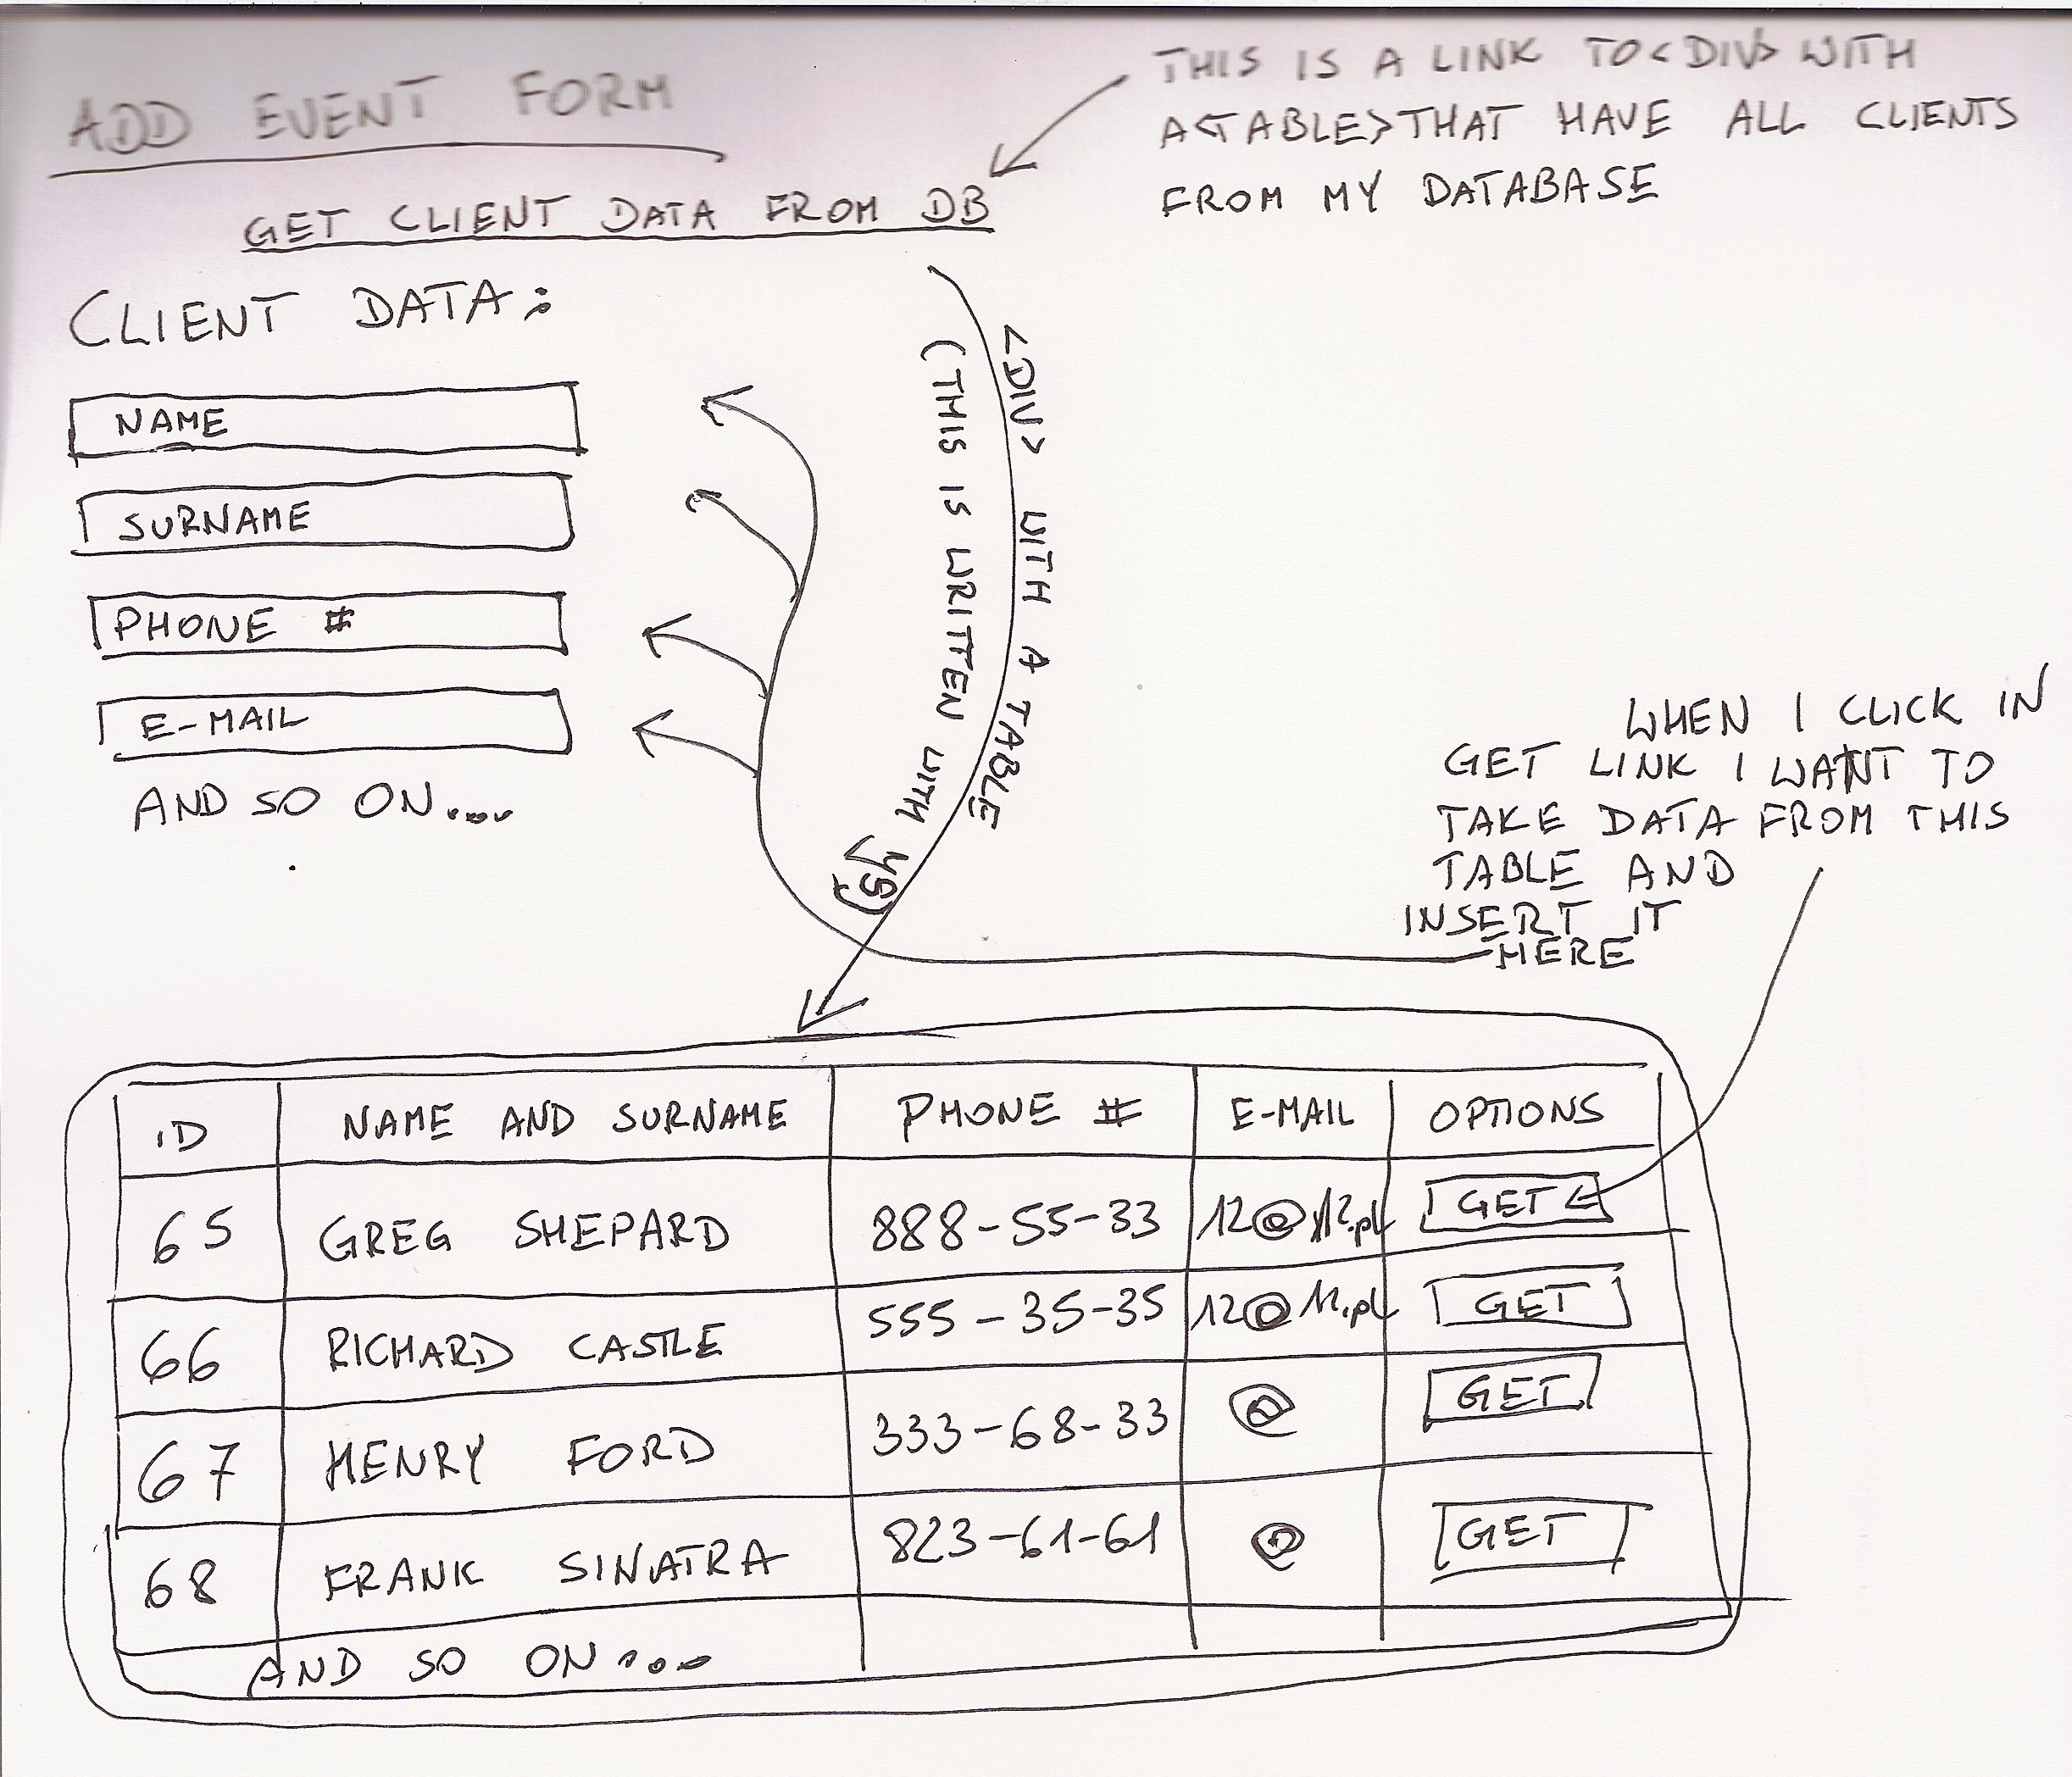 ADD EVENT FORM
THIS IS A LINK TO <DIV> WITH
A <TABLE> THAT HAVE ALL CLIENTS
FROM MY DATABASE
GET CLIENT DATA FROM DB
CLIENT DATA:
NAME
SURNAME
PHONE #
E-MAIL
AND SO ON....
<DIV> WITH A TABLE
(THIS IS WRITTEN WITH
WHEN I CLICK IN
GET LINK I WANT TO
TAKE DATA FROM THIS
TABLE AND
INSERT IT
HERE
ID NAME AND SURNAME PHONE # E-MAIL OPTIONS
65 GREG SHEPARD 888-55-33 GET
66 RICHARD CASTLE 555-35-35 GET
67 HENRY FORD 333-68-33 @ GET
68 FRANK SINATRA 823-61-61 @ GET
AND SO ON...